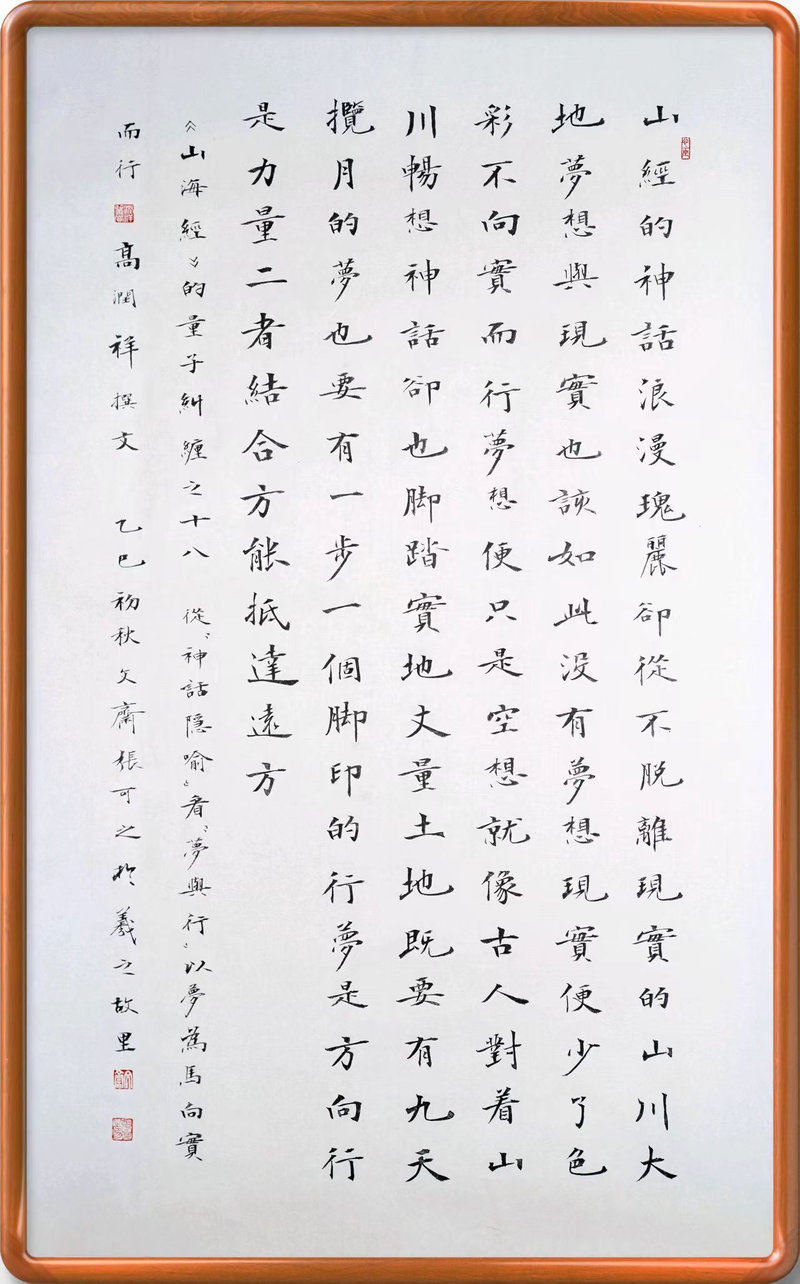 山經的神話浪漫瑰麗卻從不脫離現實的山川大
地夢想與現實也該如此没有夢想現實便少了色
彩不向實而行夢想便只是空想就像古人對着山
川暢想神話卻也脚踏實地丈量土地既要有九天
攬月的夢也要有一步一個脚印的行夢是方向行
是力量二者結合方能抵達遠方
《山海經》的量子糾纏之十八 從“神話隱喻”看“夢與行”以夢為馬向實
而行 高潤祥撰文 乙巳初秋文齋張可之於羲之故里